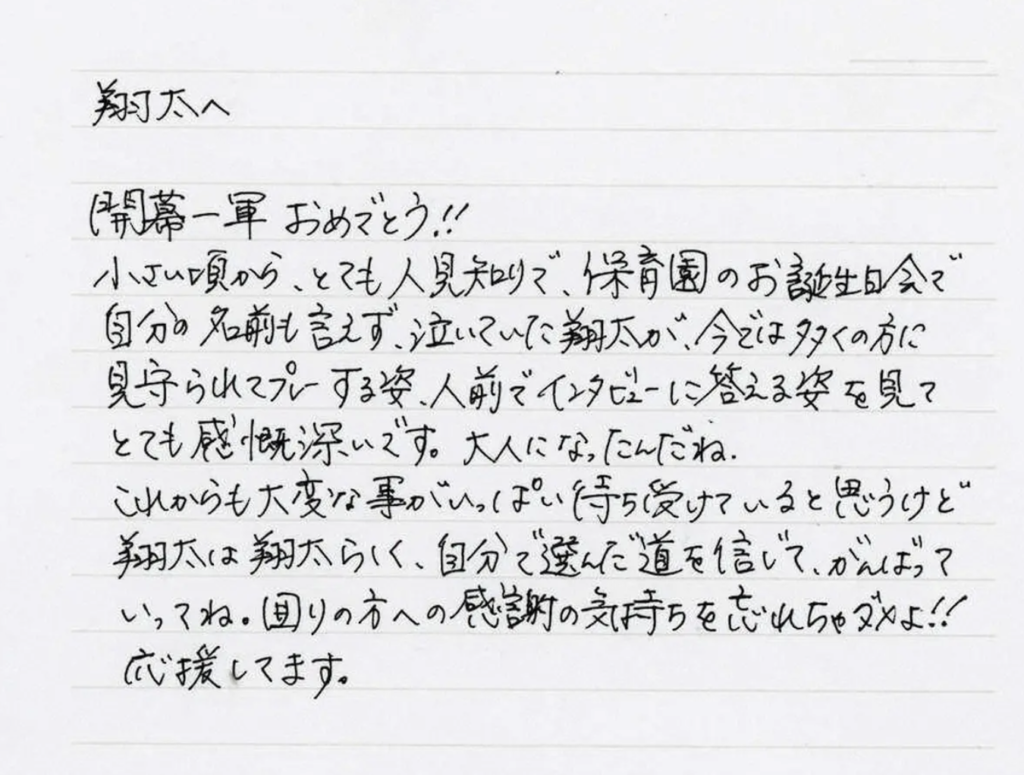 翔太へ
開幕一軍 おめでとう!!
小さい頃から、とても人見知りで、保育園のお誕生日会で
自分の名前も言えず、泣いていた翔太が、今では多くの方に
見守られてプレーする姿、人前でインタビューに答える姿を見て
とても感慨深いです。大人になったんだね.
これからも大変な事がいっぱい待ち受けていると思うけど
翔太は翔太らしく、自分で選んだ道を信じて、がんばって
いってね。回りの方への感謝の気持ちを忘れちゃダメよ!!
応援してます。